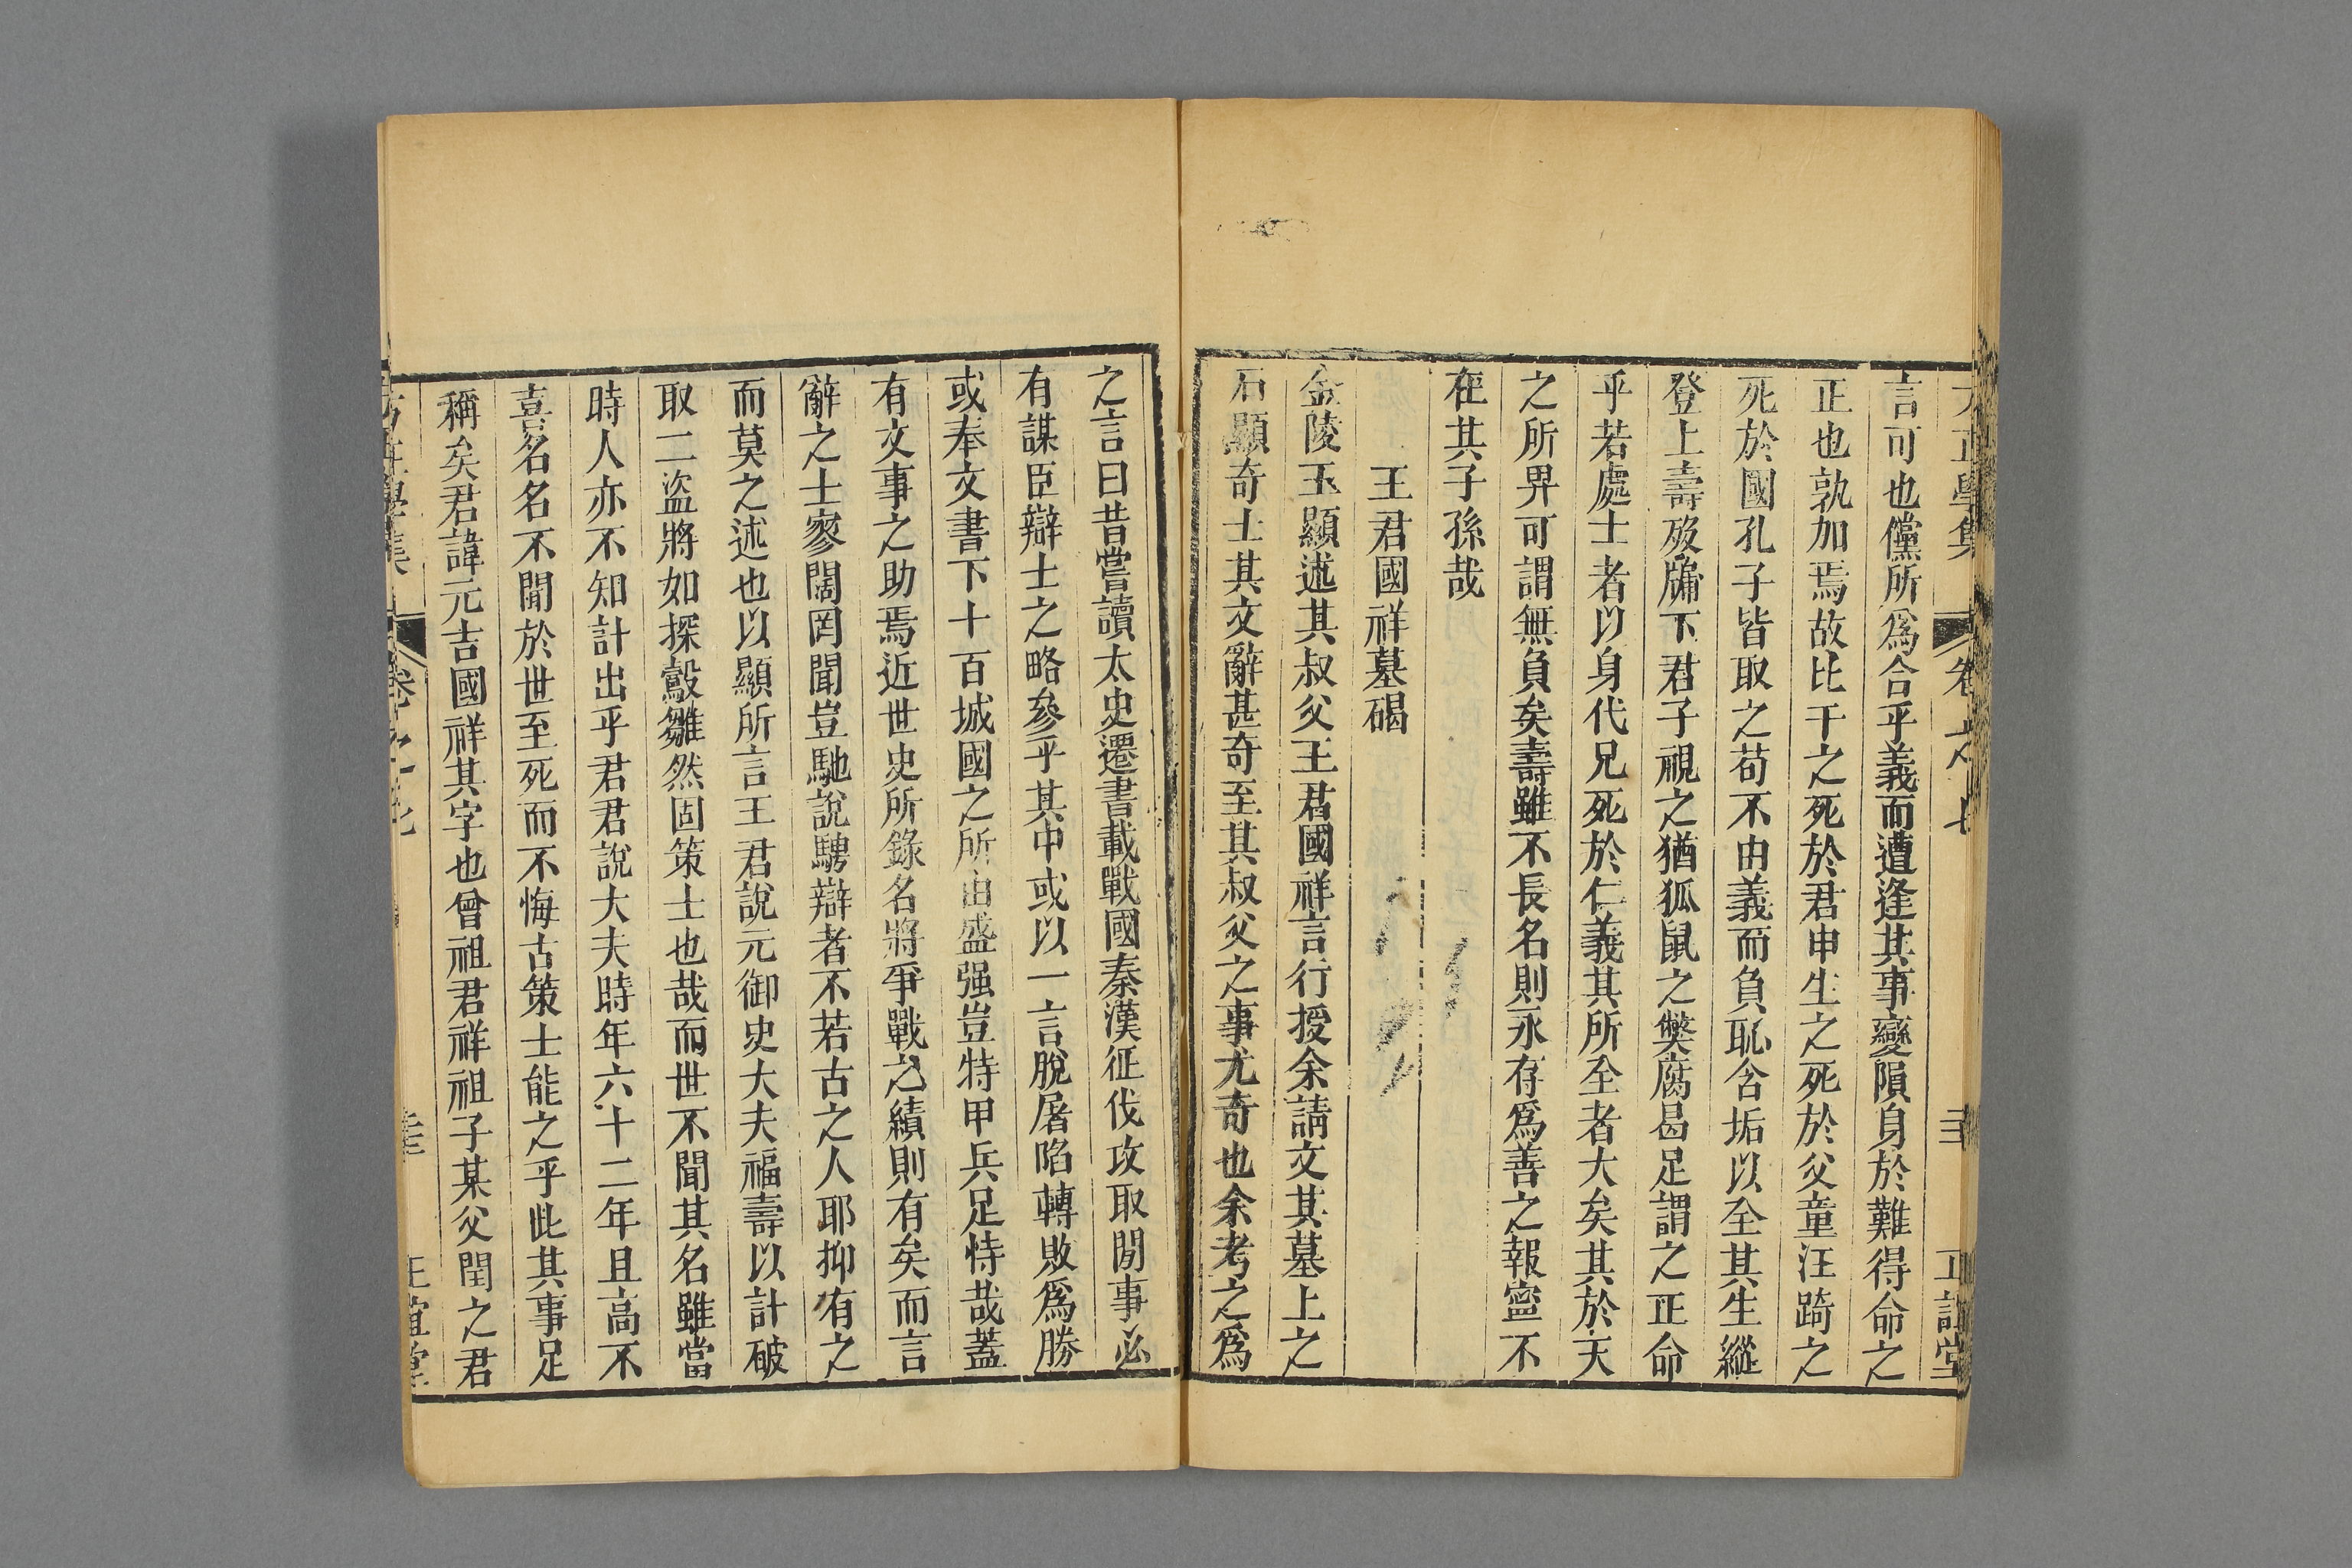 言可也儻所爲合乎義而遭逢其事變隕身於難得命之
正也孰加焉故比干之死於君申生之死於父童汪踦之
死於國孔子皆取之苟不由義而負恥含垢以全其生縱
登上壽歿牖下君子視之猶狐鼠之獘腐曷足謂之正命
乎若處士者以身代兄死於仁義其所全者大矣其於天
之所畀可謂無負矣壽雖不長名則永存爲善之報寧不
在其子孫哉
王君國祥墓碣
金陵王顯述其叔父王君國祥言行授余請文其墓上之
石顯奇士其文辭甚奇至其叔父之事尤奇也余考之爲
之言曰昔嘗讀太史遷書載戰國秦漢征伐攻取閒事必
有謀臣辯士之略參乎其中或以一言脫屠陷轉敗爲勝
或奉文書下十百城國之所由盛强豈特甲兵足恃哉蓋
有文事之助焉近世史所錄名將爭戰之績則有矣而言
辭之士寥闊罔聞豈馳說騁辯者不若古之人耶抑有之
而莫之述也以顯所言王君說元御史大夫福壽以計破
取二盜將如探鷇雛然固策士也哉而世不聞其名雖當
時人亦不知計出乎君君說大夫時年六十二年且高不
喜名名不聞於世至死而不悔古策士能之乎此其事足
稱矣君諱元吉國祥其字也曾祖君祥祖子某父閏之君
正誼堂